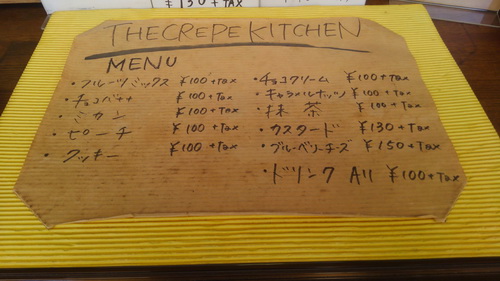 ¥150 + TAX
THE CREPE KITCHEN
MENU
・フルーツミックス ¥100+Tax
・チョコバナナ ¥100+Tax
・ミカン ¥100+Tax
・ピーチ ¥100+Tax
・クッキー ¥100+Tax
・チョコクリーム ¥100+Tax
・キャラメルナッツ ¥100+Tax
・抹茶 ¥100+Tax
・カスタード ¥130+Tax
・ブルーベリーチーズ ¥150+Tax
・ドリンク All ¥100+Tax